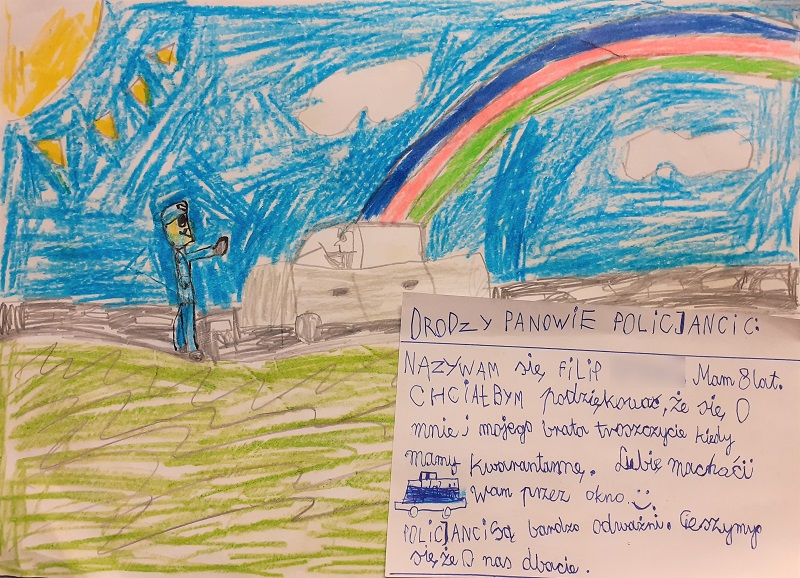 DRODZY PANOWIE POLICJANCI:
NAZYWAM się FiLiP Mam 8 lat.
CHCIAŁBYM podziękować, że się O
mnie i mojego brata troszczycie kiedy
mamy kwarantannę. Lubię machać
Wam przez okno.
POLICJANCI Są bardzo odważni. Cieszymy
się, że O nas dbacie.